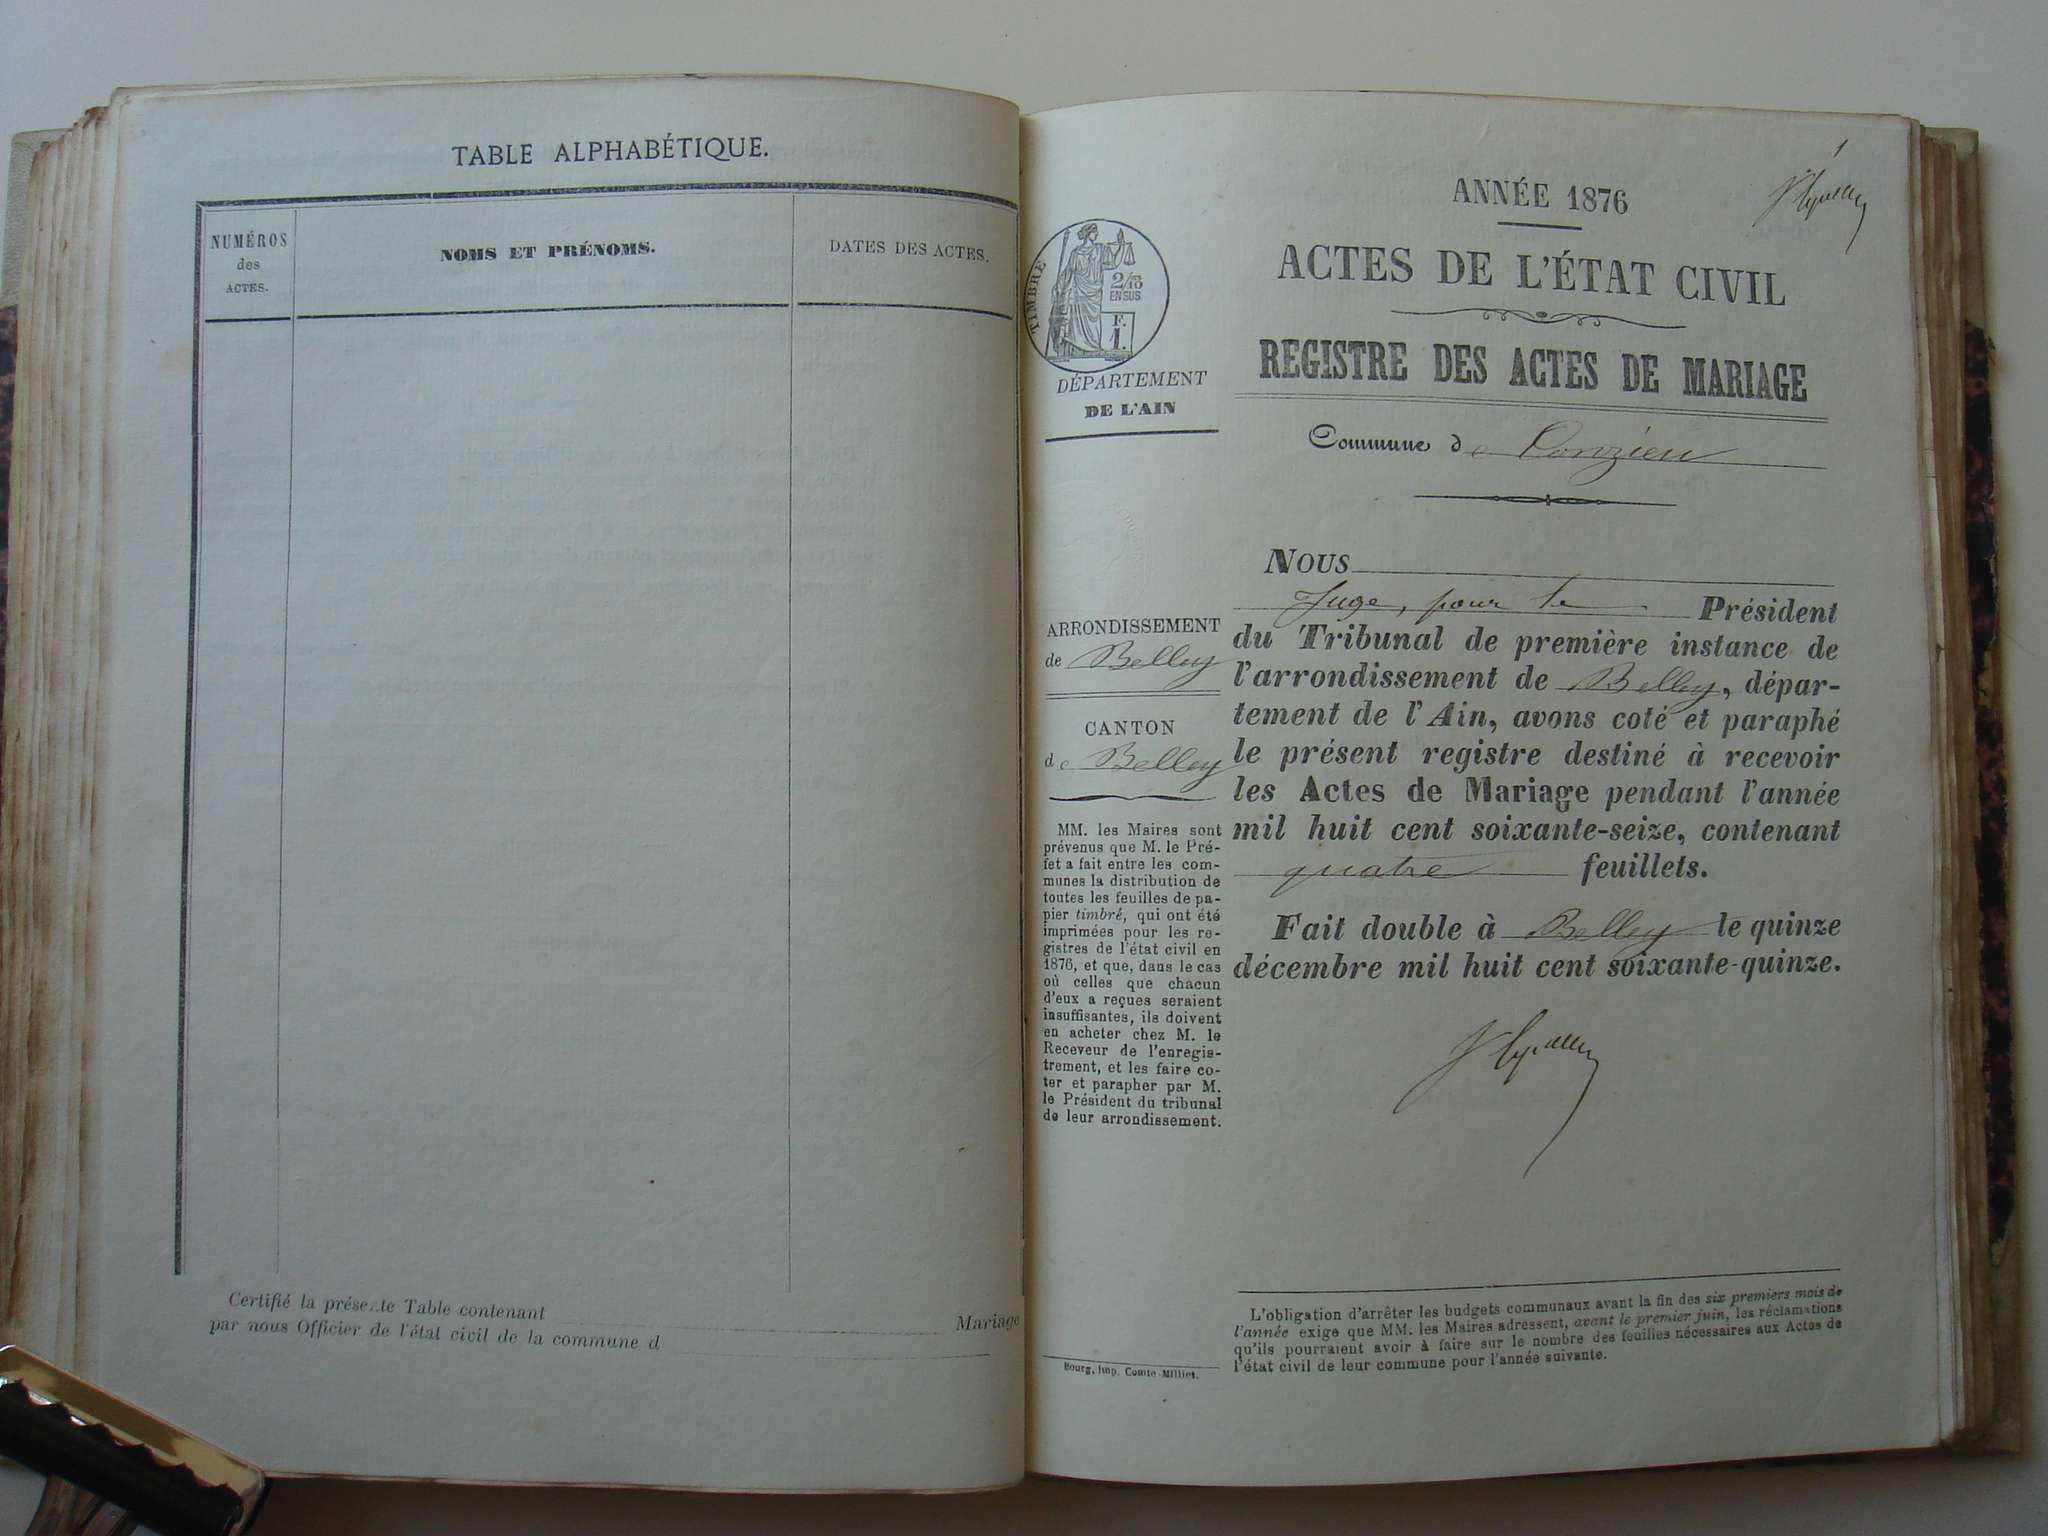 TABLE ALPHABÉTIQUE.
NUMÉROS
des
ACTES.
NOMS ET PRÉNOMS.
DATES DES ACTES.
Certifié la présente Table contenant Mariage
par nous Officier de l'état civil de la commune d
1
ANNÉE 1876
ACTES DE L'ÉTAT CIVIL
REGISTRE DES ACTES DE MARIAGE
Commune de Conzieu
TIMBRE
2/10
EN SUS
F.
1.
DÉPARTEMENT
DE L'AIN
ARRONDISSEMENT
de Belley
CANTON
de Belley
MM. les Maires sont
prévenus que M. le Pré-
fet a fait entre les com-
munes la distribution de
toutes les feuilles de pa-
pier timbré, qui ont été
imprimées pour les re-
gistres de l'état civil en
1876, et que, dans le cas
où celles que chacun
d'eux a reçues seraient
insuffisantes, ils doivent
en acheter chez M. le
Receveur de l'enregis-
trement, et les faire co-
ter et parapher par M.
le Président du tribunal
de leur arrondissement.
Bourg, Imp. Comte-Milliet.
NOUS
Juge, pour le Président
du Tribunal de première instance de
l'arrondissement de Belley, dépar-
tement de l'Ain, avons coté et paraphé
le présent registre destiné à recevoir
les Actes de Mariage pendant l'année
mil huit cent soixante-seize, contenant
quatre feuillets.
Fait double à Belley le quinze
décembre mil huit cent soixante-quinze.
L'obligation d'arrêter les budgets communaux avant la fin des six premiers mois de
l'année exige que MM. les Maires adressent, avant le premier juin, les réclamations
qu'ils pourraient avoir à faire sur le nombre des feuilles nécessaires aux Actes de
l'état civil de leur commune pour l'année suivante.